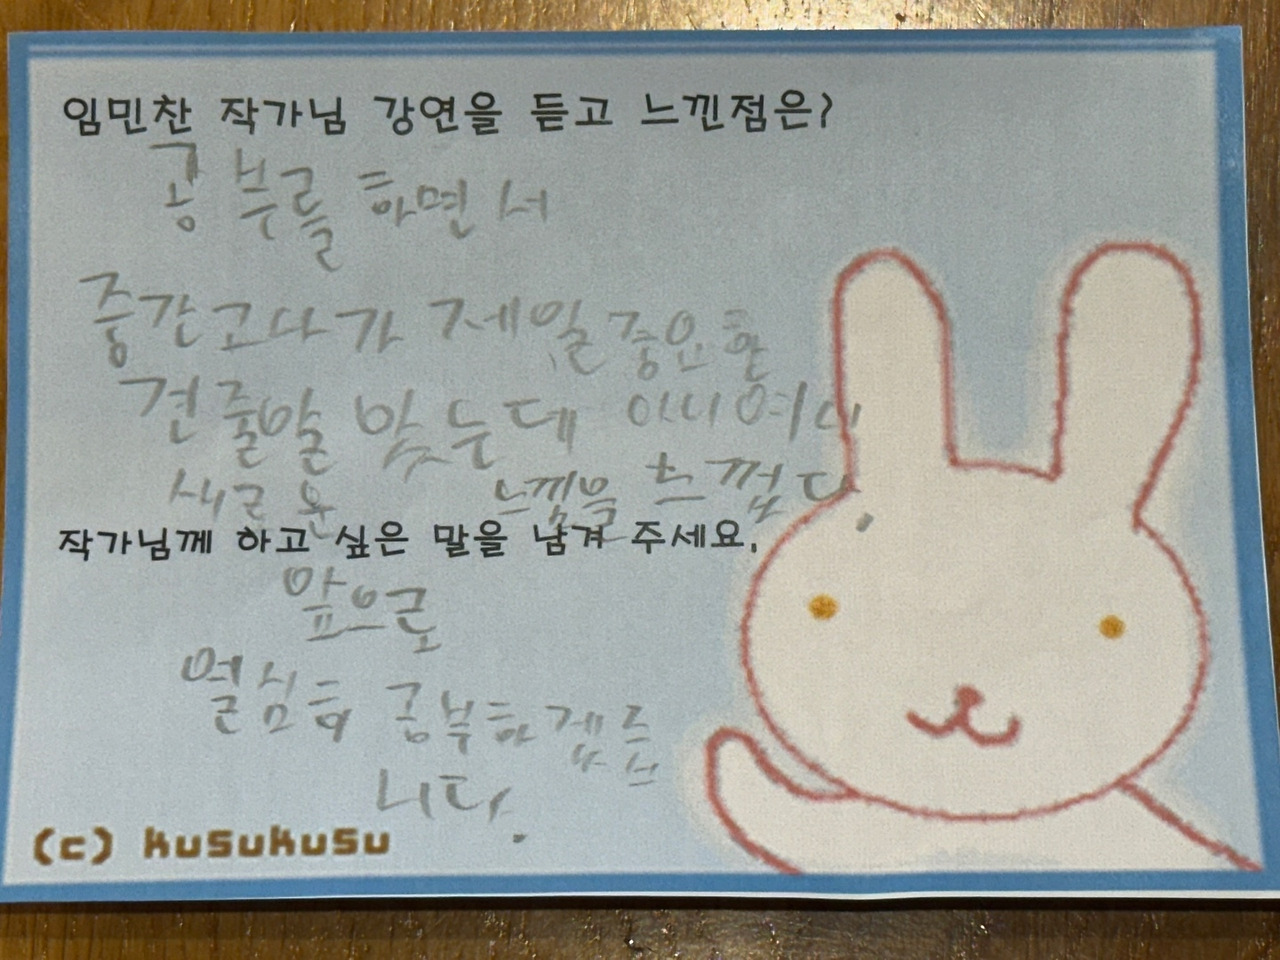 임민찬 작가님 강연을 듣고 느낀점은?
공부를 하면서
중간고사가 제일 중요한
건줄알았는데 아니여서
새로운 느낌을 느꼈다.
작가님께 하고 싶은 말을 남겨 주세요.
앞으로
열심히 공부하겠습
니다.
(c) kusukusu